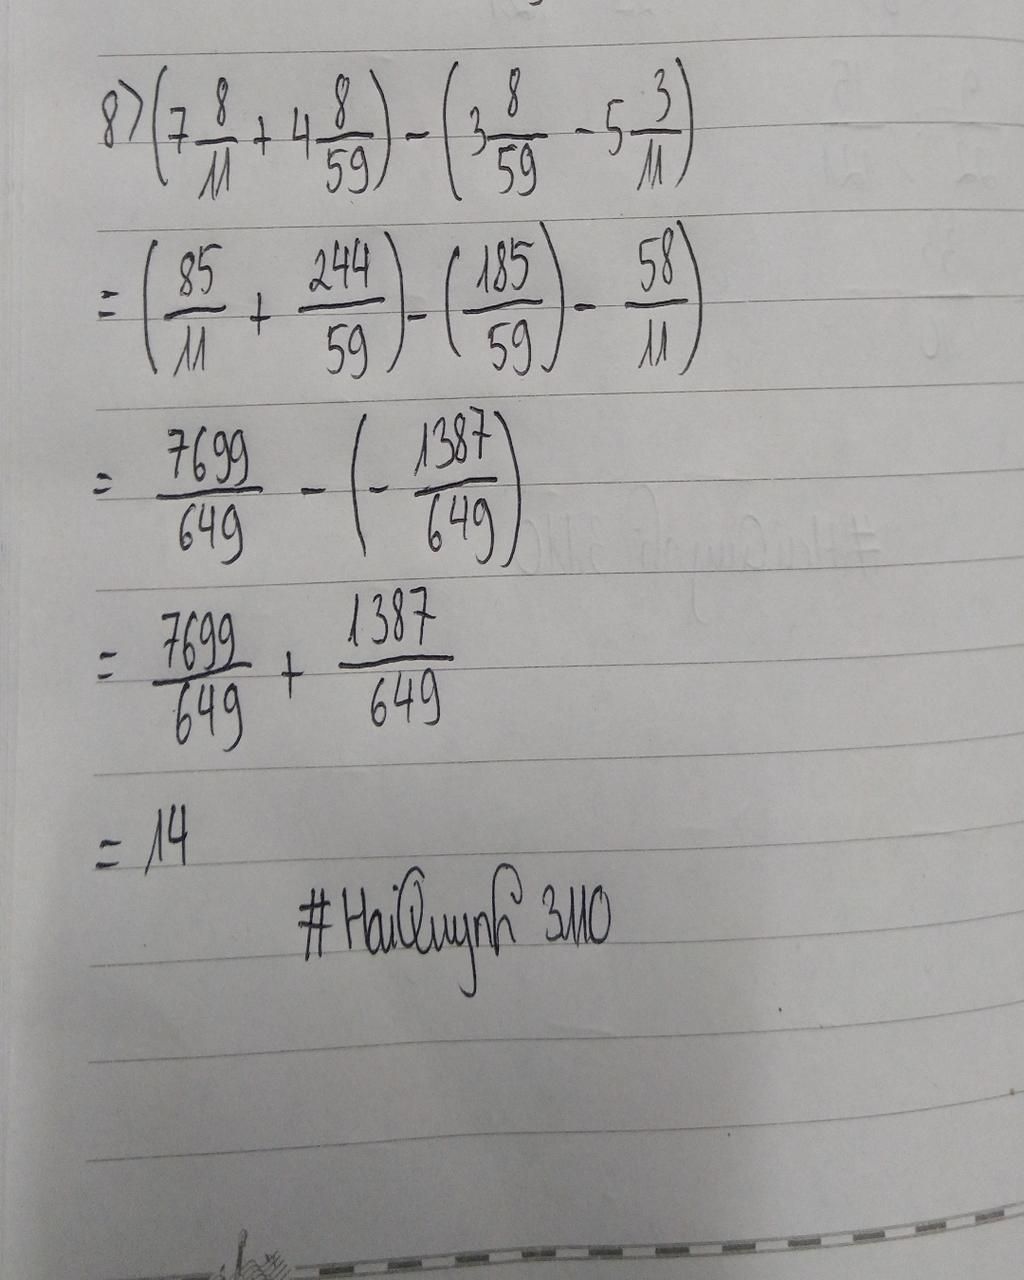 8) (7 8/11 + 4 8/59) - (3 8/59 - 5 3/11)
= (85/11 + 244/59) - (185/59) - 58/11)
= 7699/649 - (- 1387/649)
= 7699/649 + 1387/649
= 14
#HaiQuynh 3110